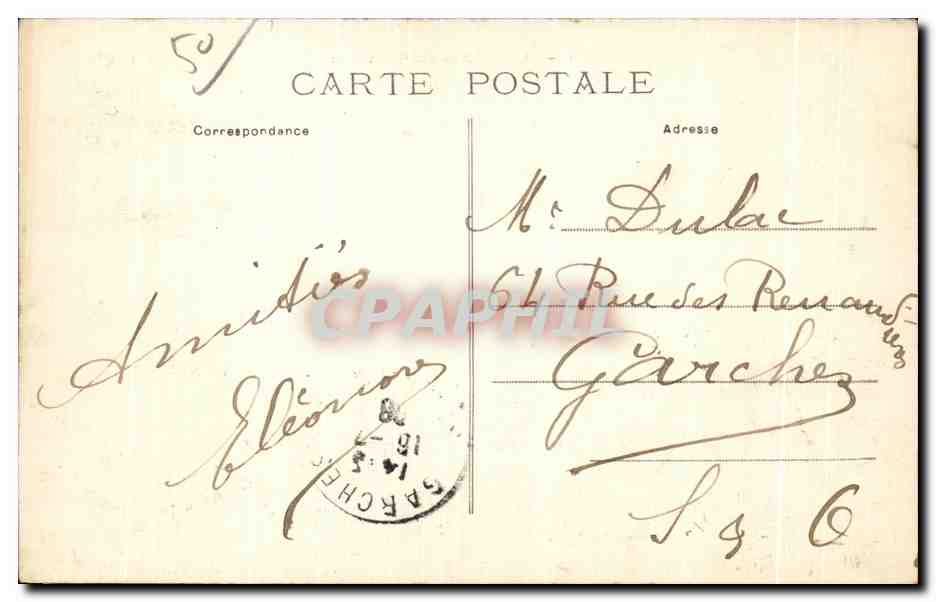 50
CARTE POSTALE
Correspondance
Adresse
Amitiés
Eléonore
Mr. Dulac
64 Rue des Renaudières
Garches
S. & O
CPAPHIL
GARCHES
14-5
16 -